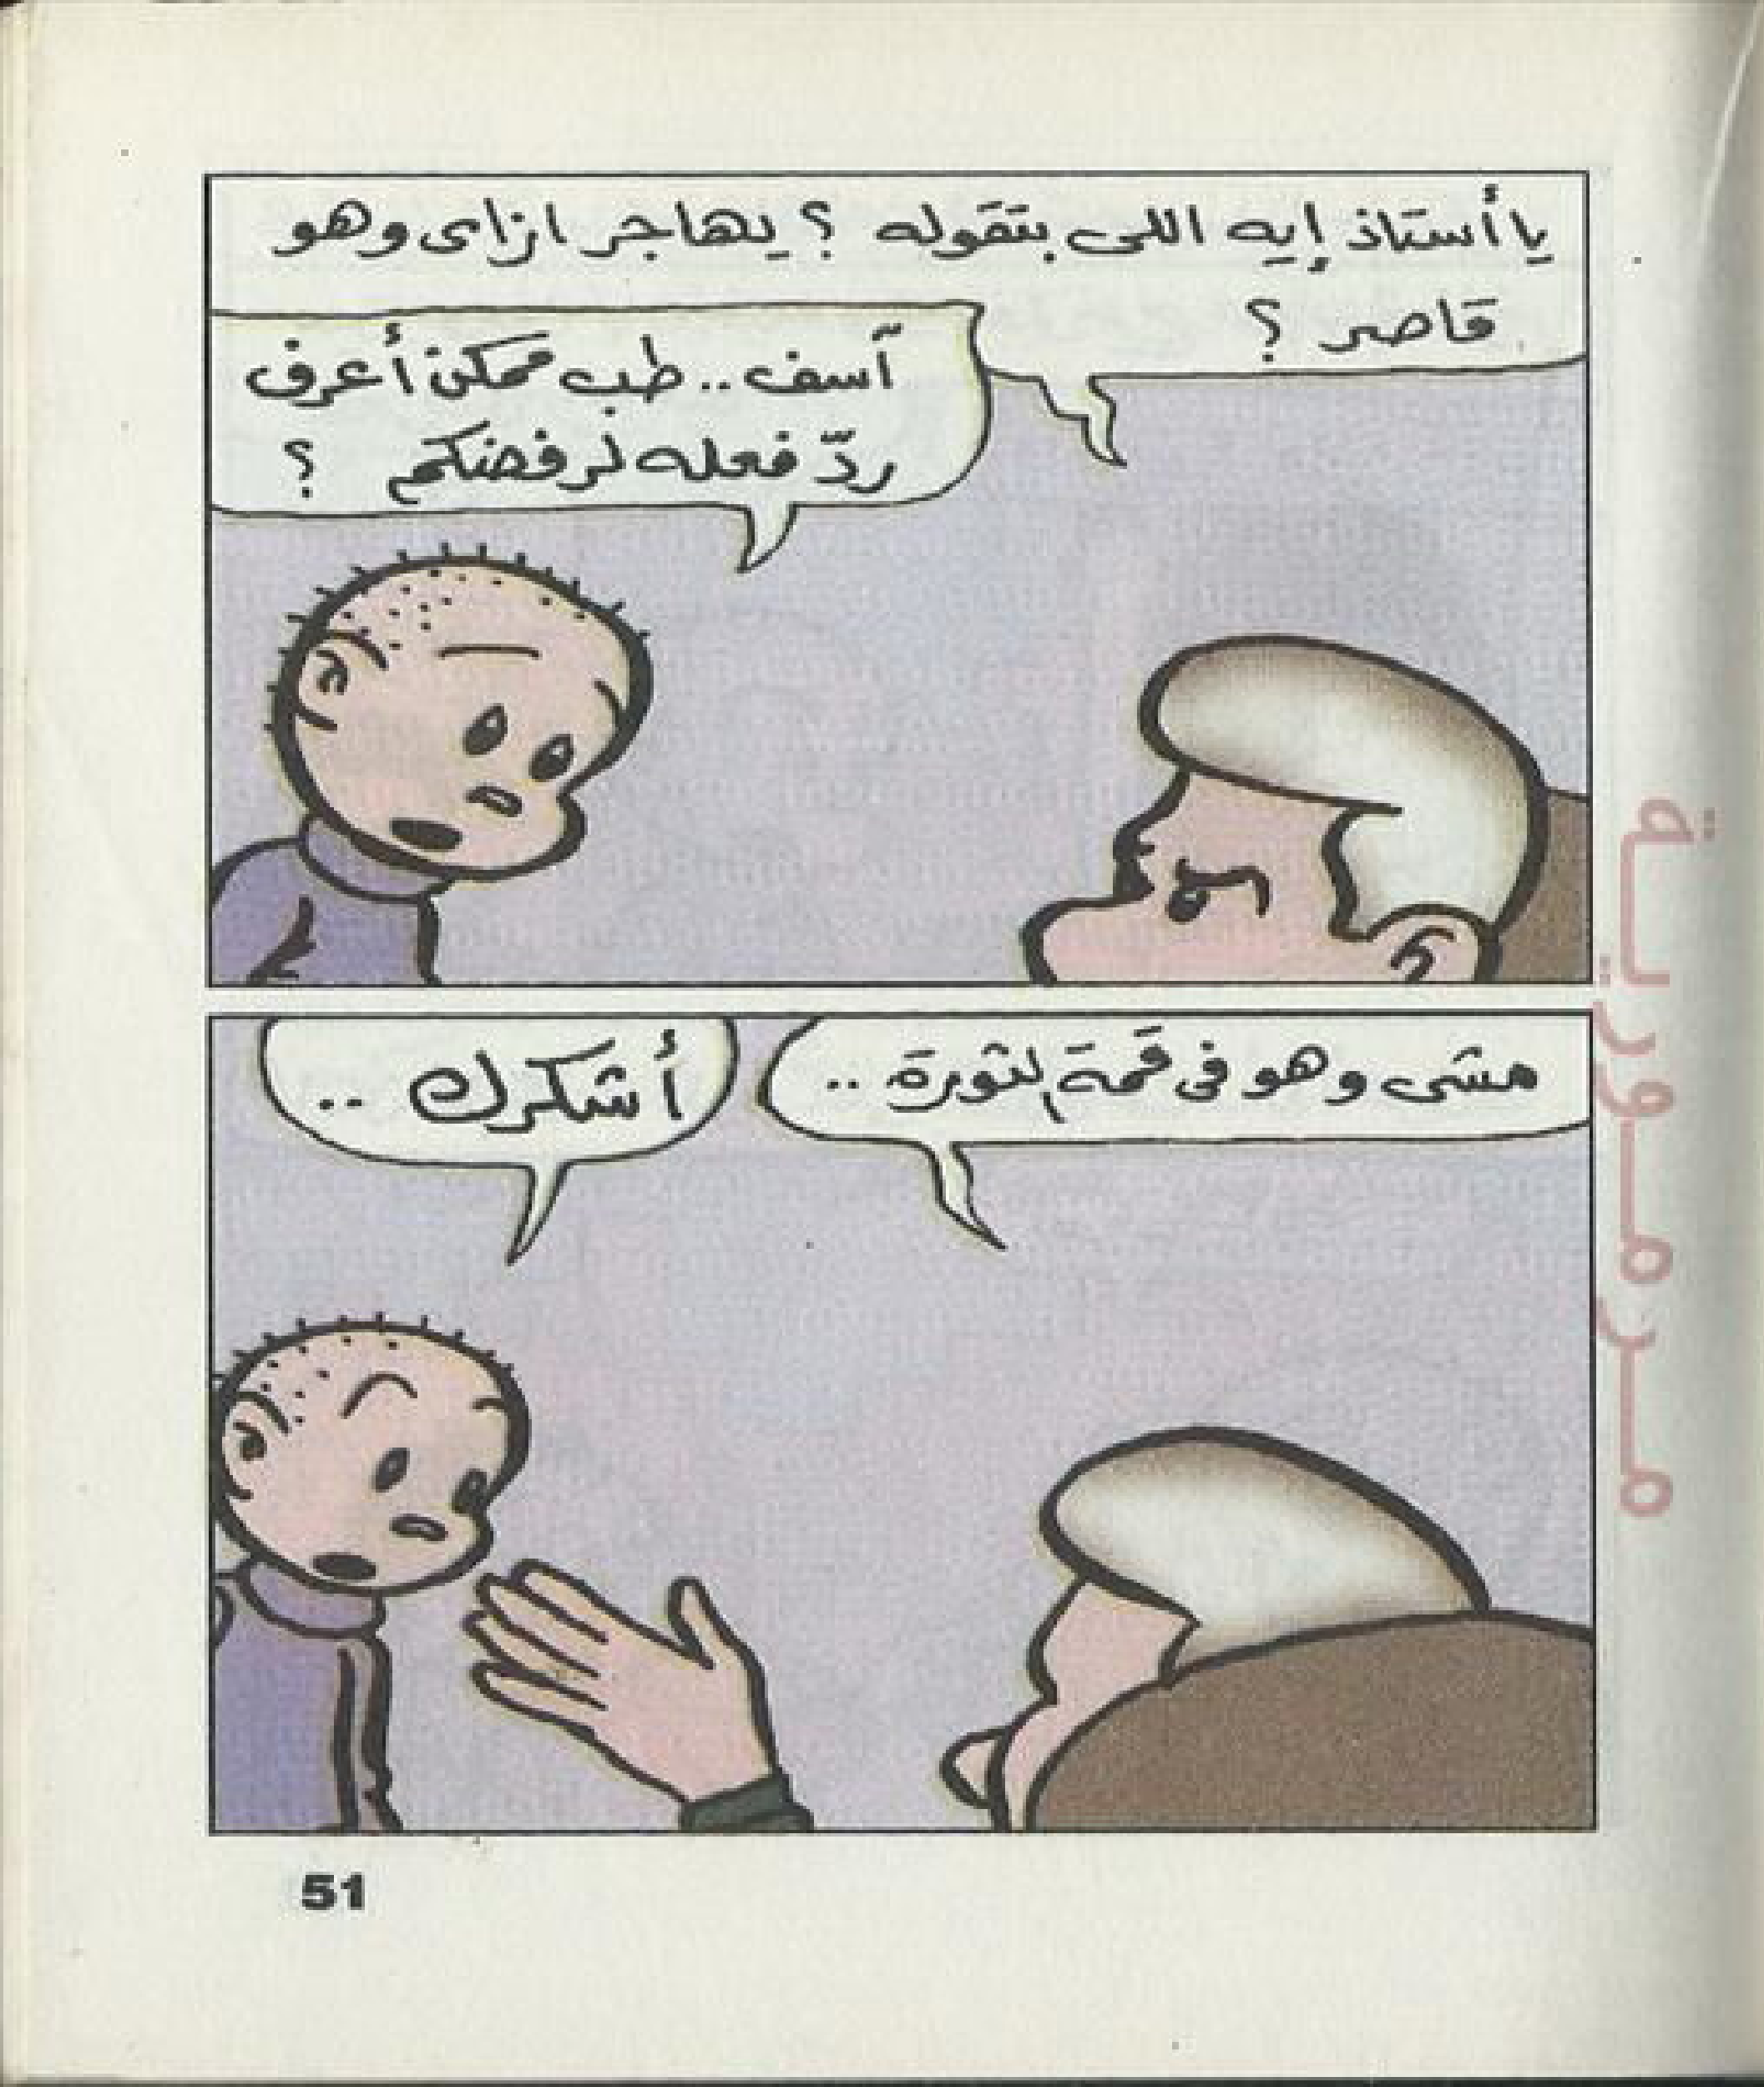 يا أستاذ إيه اللى بتقوله ؟ يهاجر ازاى وهو
قاصر ؟
آسف .. طب ممكن أعرف
ردّ فعله لرفضكم ؟
مشى وهو فى قمة الثورة ..
أشكرك ..
مـرمـوريـة
51